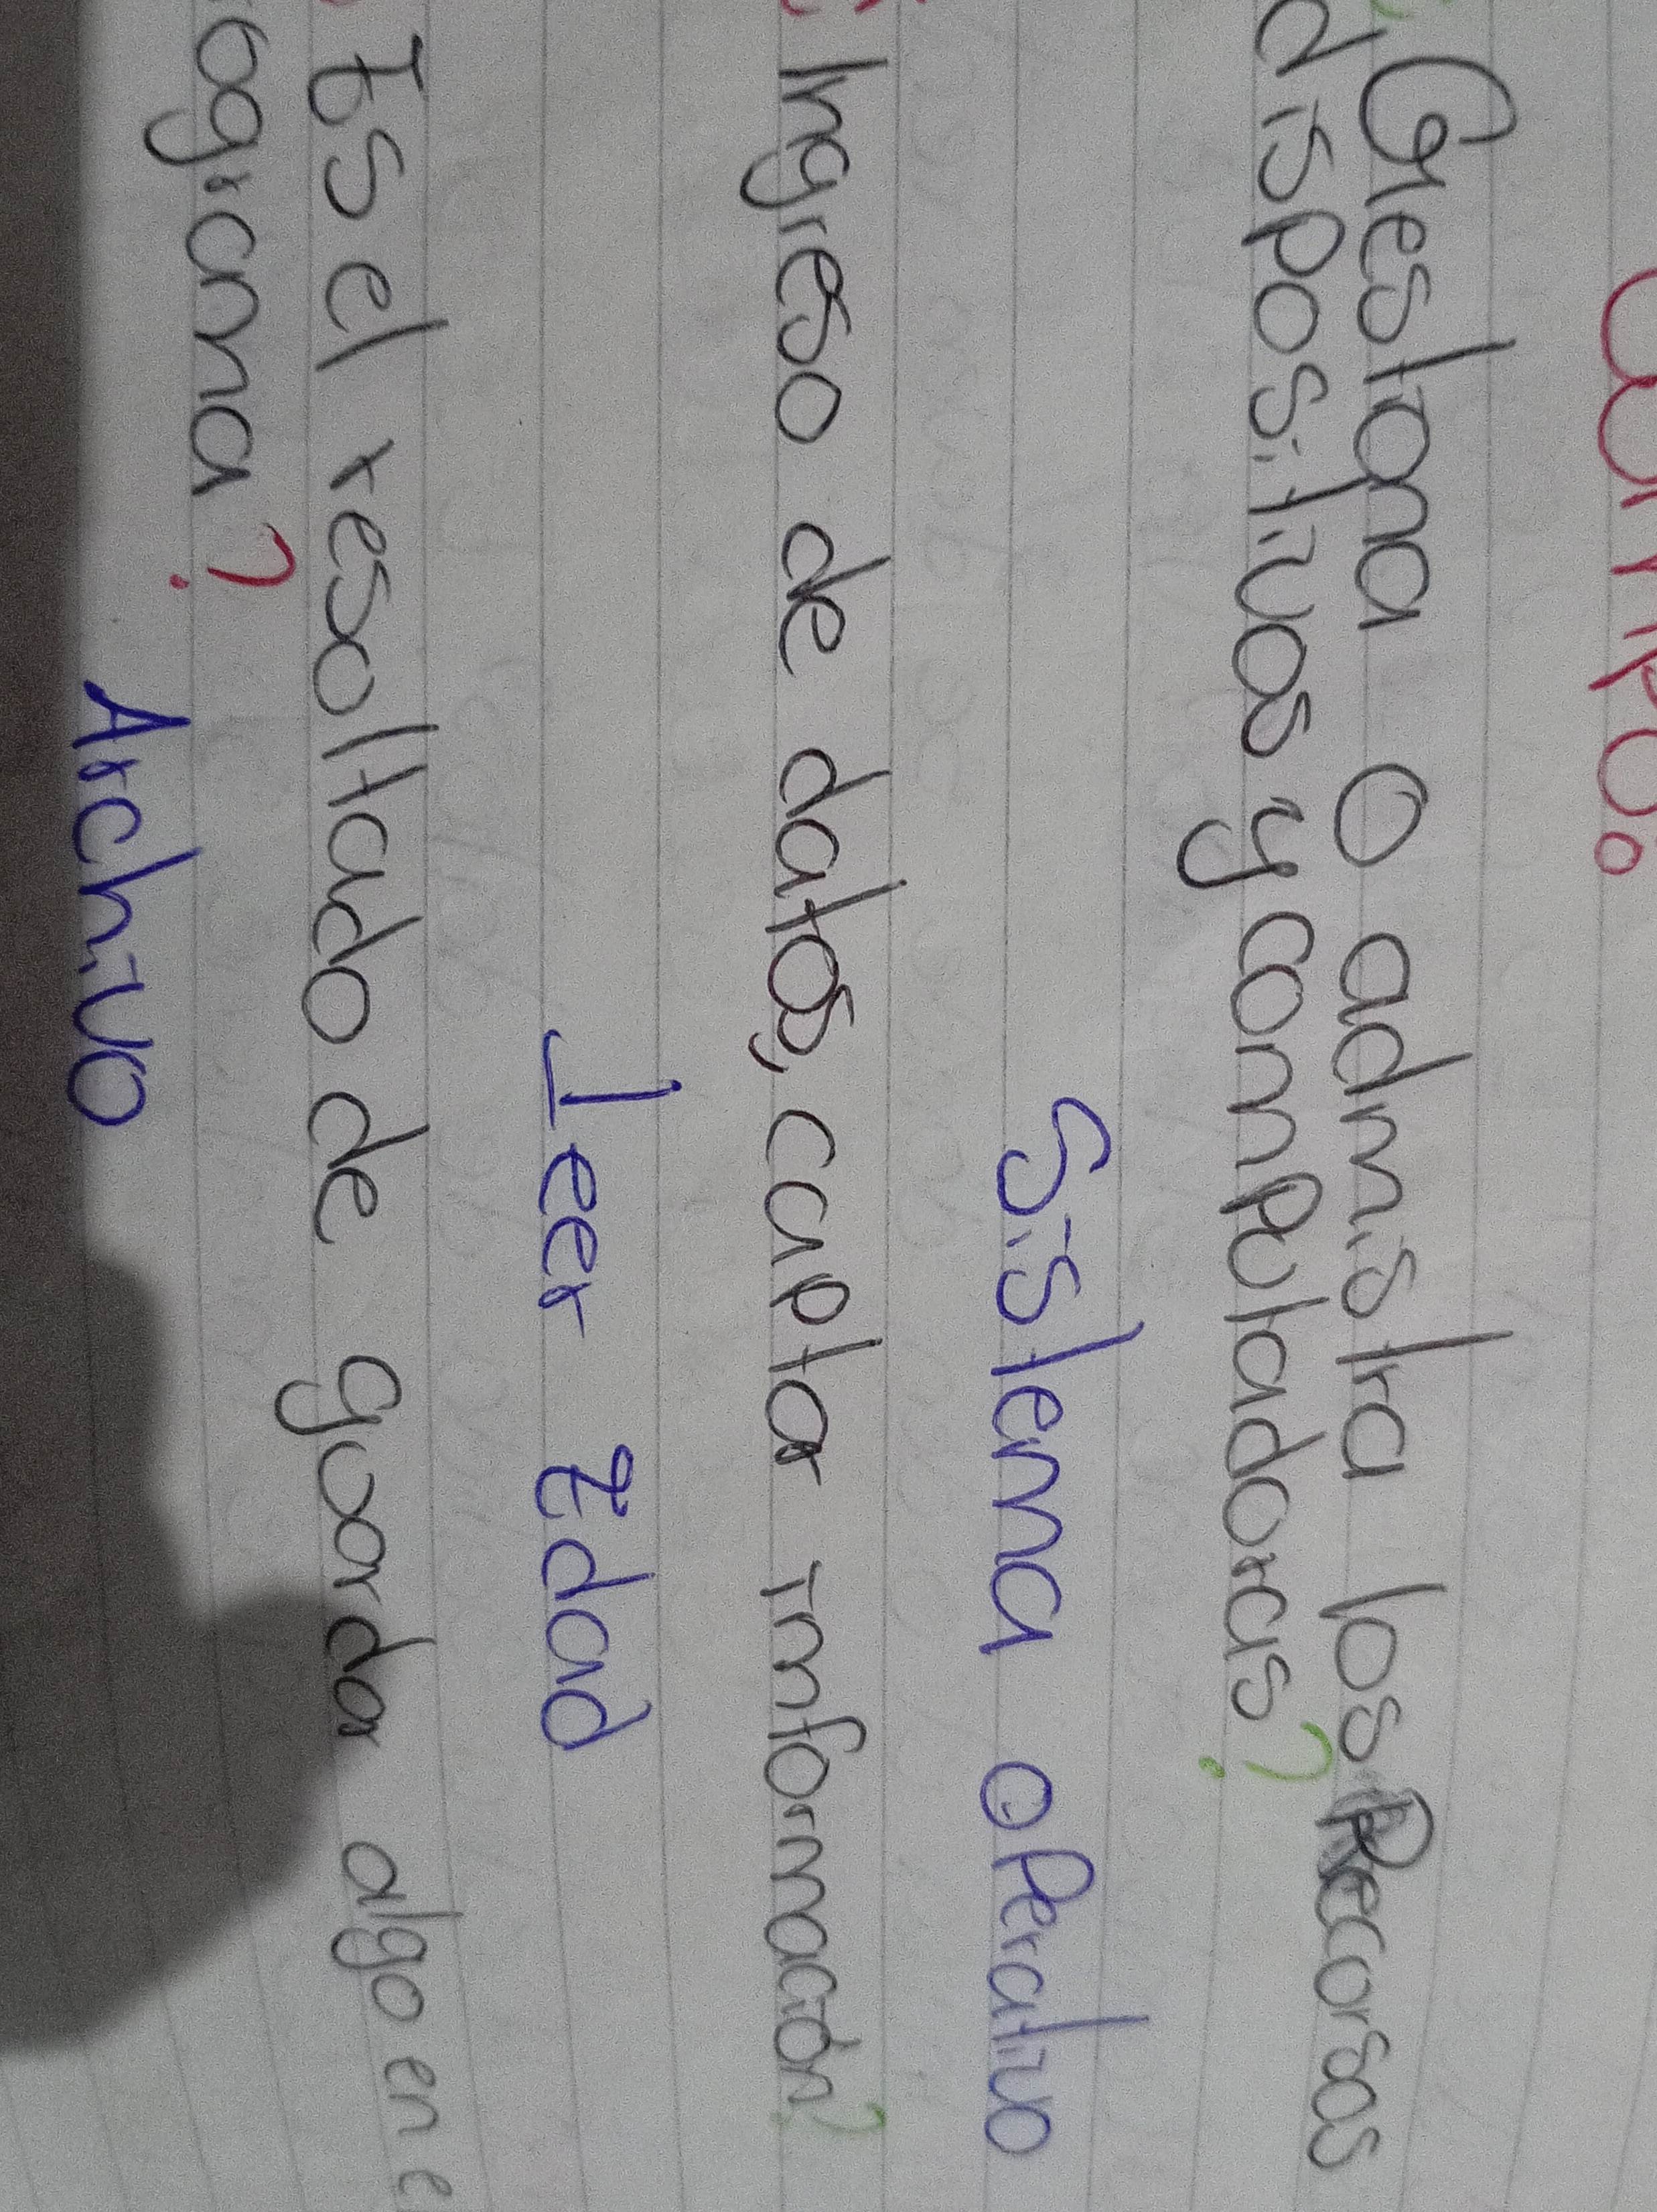 Gestiona o administra los Recorsos
dispositivos y computadoras?
Sistema operativo
Ingreso de datos, captar imformación?
Leer Edad
Es el resoltado de guardar algo en
Archivo